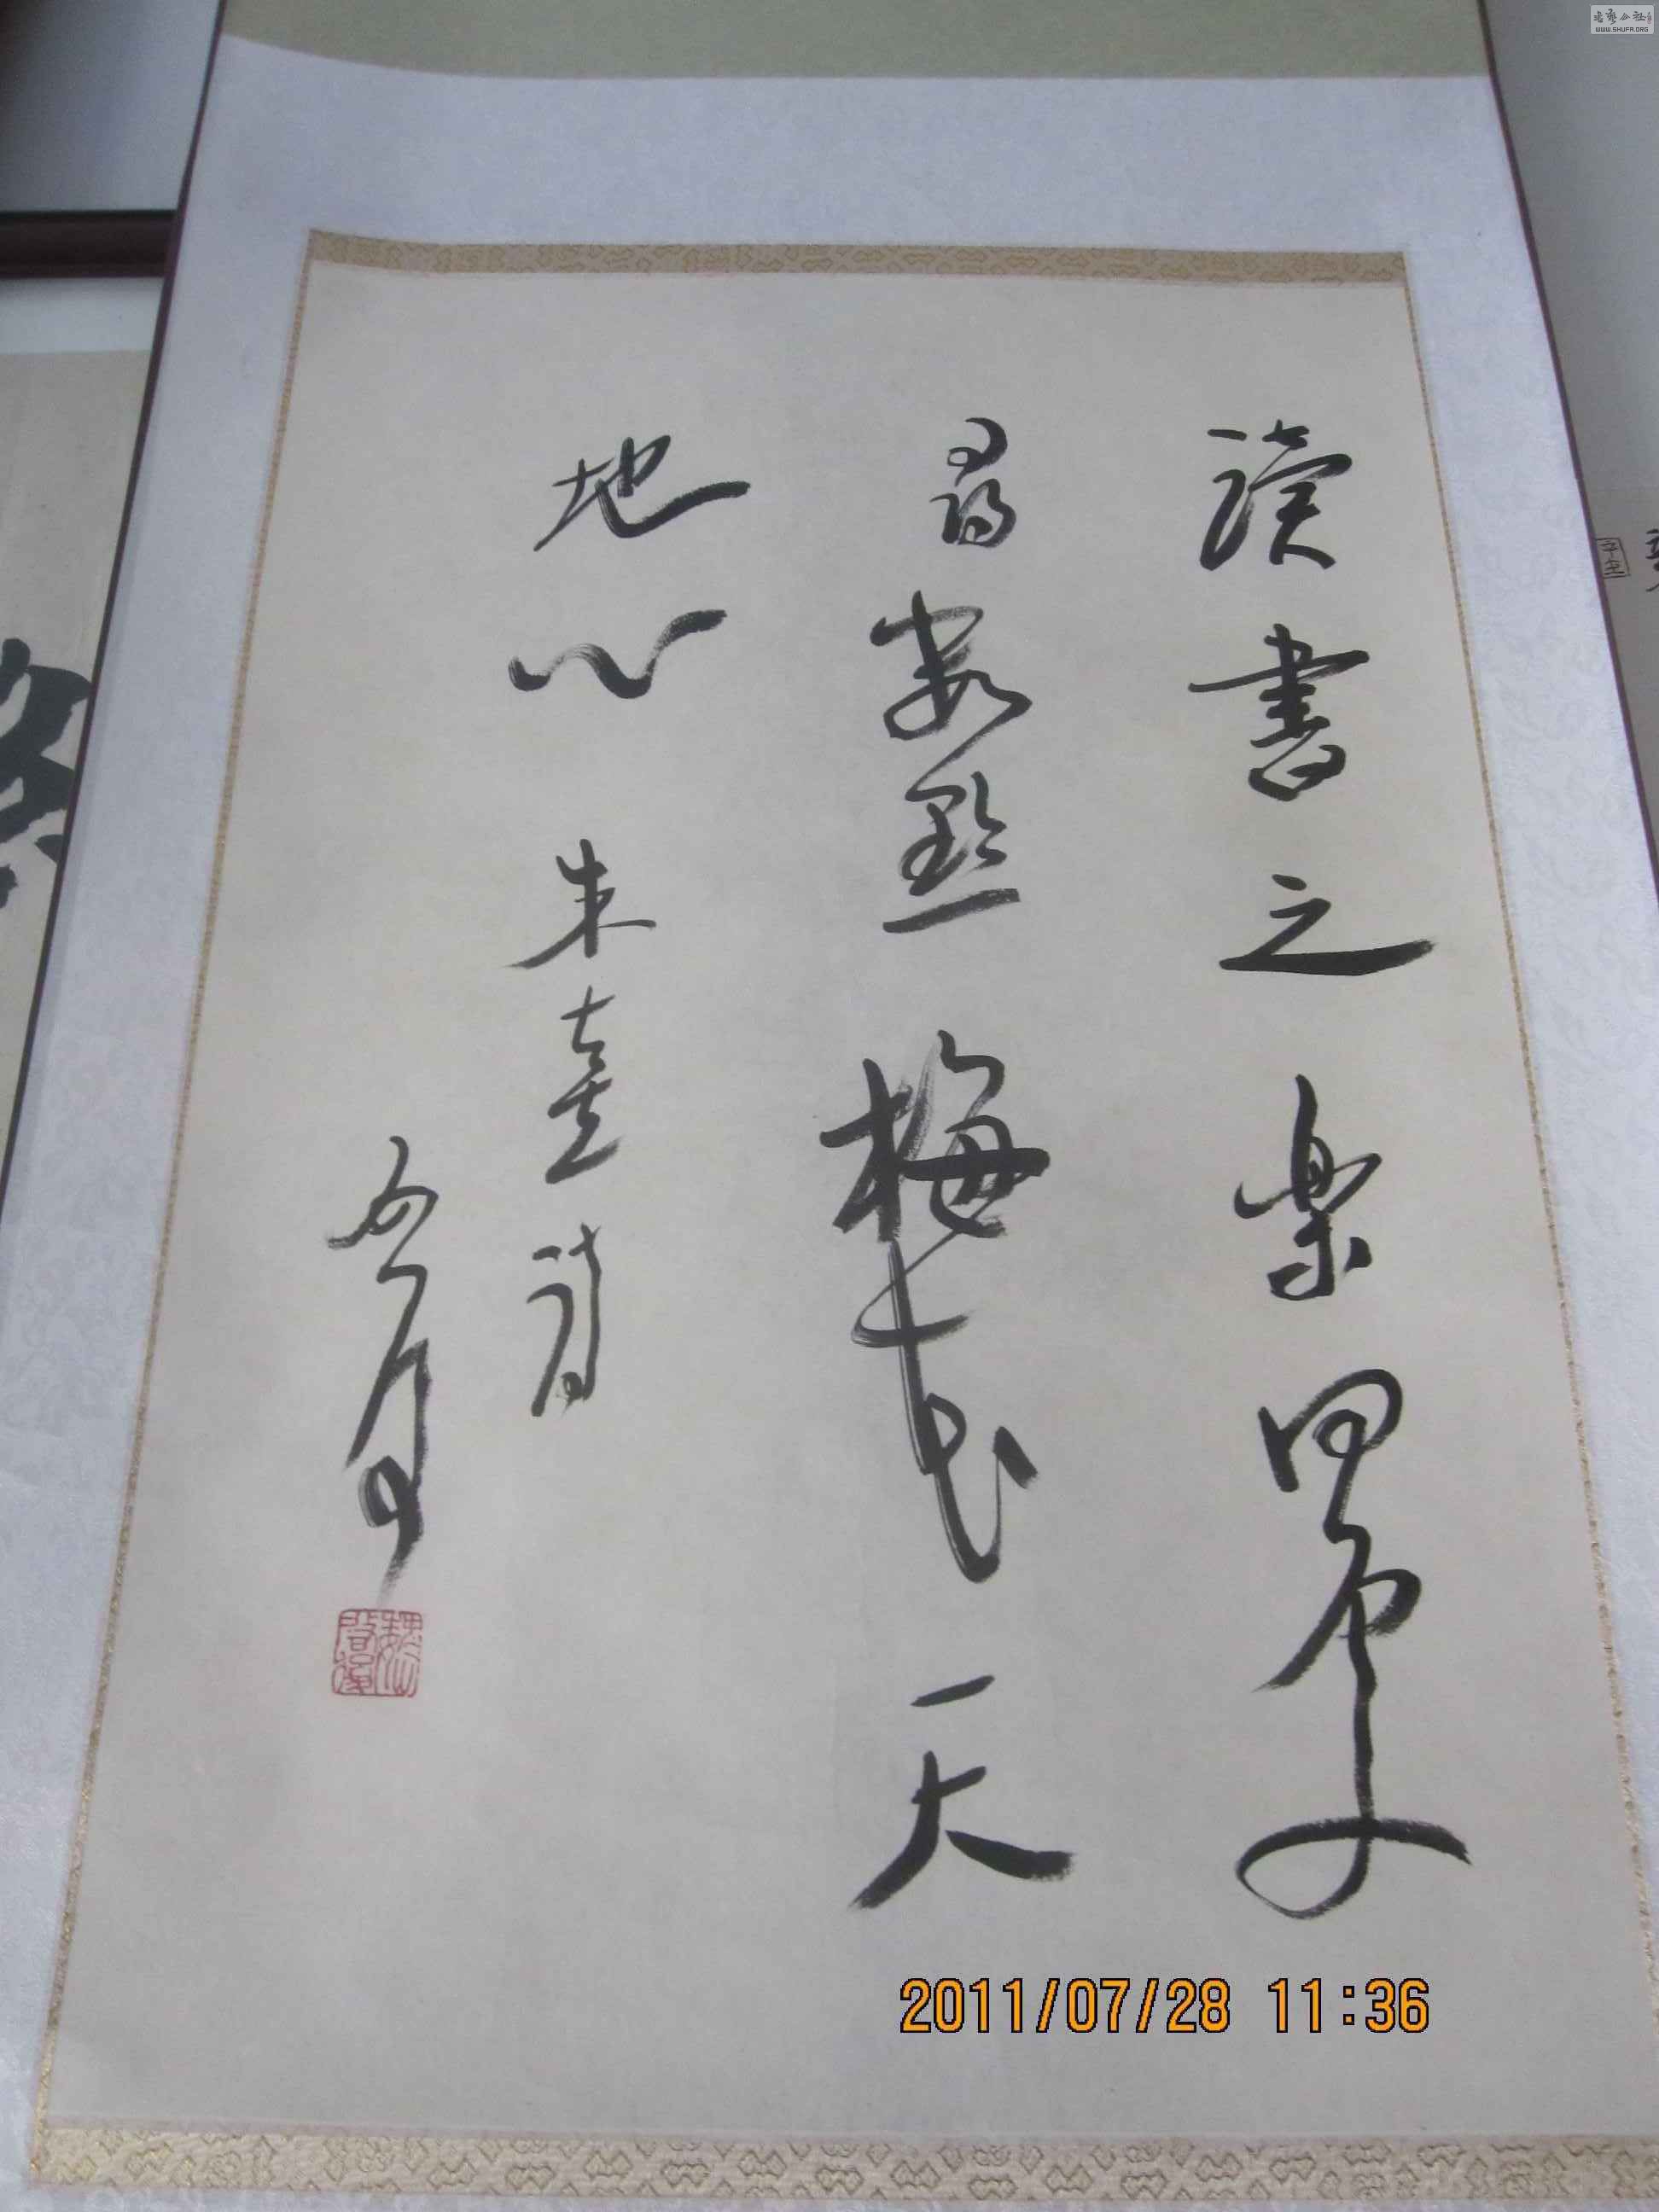 讀書之樂何處
尋數點梅花天
地心 朱熹詩
啓後
魏啓後
2011/07/28 11:36
书艺公社
WWW.SHUFA.ORG